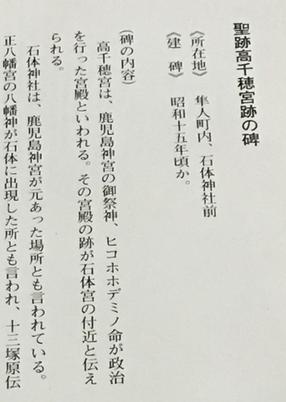 聖跡高千穂宮跡の碑
《所在地》 隼人町内、石体神社前
《建 碑》 昭和十五年頃か。
（碑の内容）
高千穂宮は、鹿児島神宮の御祭神、ヒコホホデミノ命が政治
を行った宮殿といわれる。その宮殿の跡が石体宮の付近と伝え
られる。
石体神社は、鹿児島神宮が元あった場所とも言われている。
正八幡宮の八幡神が石体に出現した所とも言われ、十三塚原伝